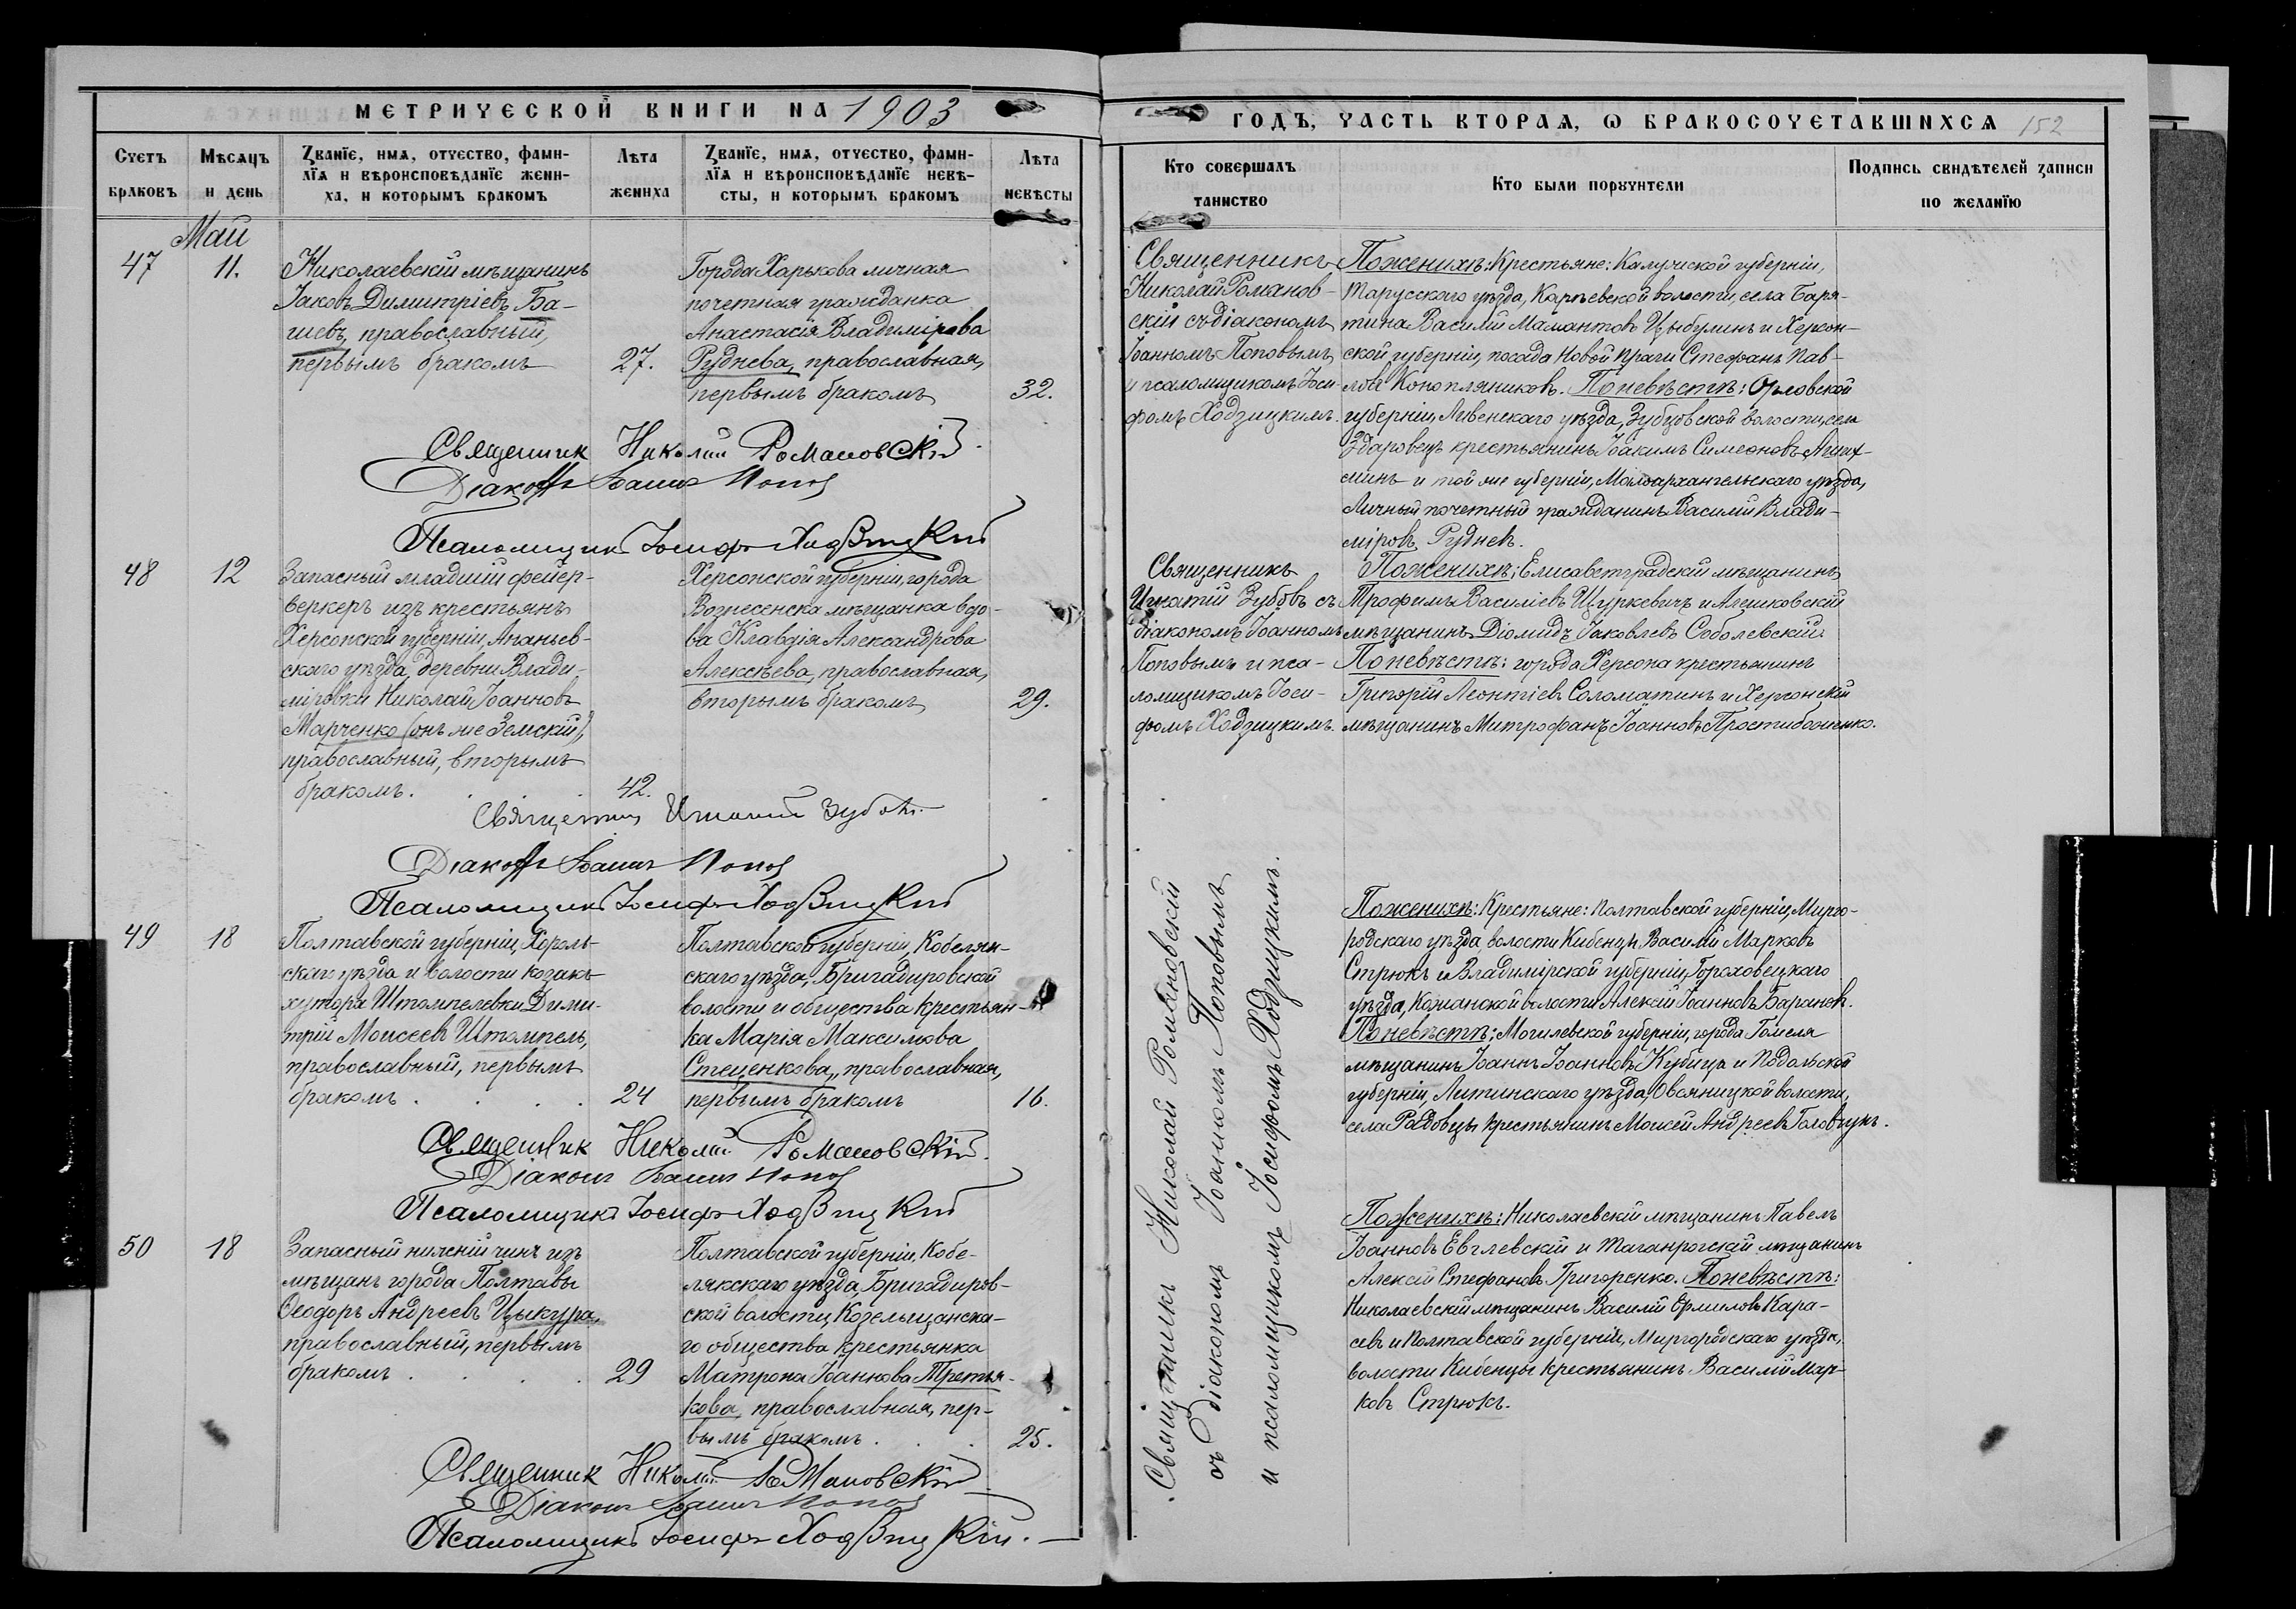 МЕТРИЧЕСКОЙ КНИГИ НА 1903
Счетъ браковъ
Мѣсяцъ и день
Званіе, имя, отчество, фами-
лія и вѣроисповѣданіе жени-
ха, и которымъ бракомъ
Лѣта жениха
Званіе, имя, отчество, фами-
лія и вѣроисповѣданіе невѣ-
сты, и которымъ бракомъ
Лѣта невѣсты
Май
47
11.
Николаевскій мѣщанинъ
Іаковъ Димитріевъ Ба-
гиевъ, православный,
первымъ бракомъ
27.
Города Харькова личная
почетная гражданка
Анастасія Владимірова
Руднева, православная,
первымъ бракомъ
32.
Священник Николай Романовскій
Діаконъ Іоаннъ Попов
Псаломщикъ Іосифъ Ходзицкій
48
12
Запасный младшій фейер-
веркеръ изъ крестьянъ
Херсонской губерніи, Ананьев-
скаго уѣзда, деревни Влади-
міровки Николай Іоанновъ
Марченко (онъ же Земскій),
православный, вторымъ
бракомъ.
42.
Херсонской губерніи, города
Вознесенска мѣщанка вдо-
ва Клавдія Александрова
Алексѣева, православная,
вторымъ бракомъ
29.
Священникъ Игнатій Зубовъ.
Діаконъ Іоаннъ Попов
Псаломщикъ Іосифъ Ходзицкій
49
18
Полтавской губерніи, Хороль-
скаго уѣзда и волости козакъ
хутора Штомпелевки Дими-
трій Моисеевъ Штомпель,
православный, первымъ
бракомъ
24
Полтавской губерніи, Кобеляк-
скаго уѣзда, Бригадировской
волости и общества крестьян-
ка Марія Максимова
Стеценкова, православная,
первымъ бракомъ
16.
Священник Николай Романовскій.
Діаконъ Іоаннъ Попов
Псаломщикъ Іосифъ Ходзицкій
50
18
Запасный нижній чинъ изъ
мѣщанъ города Полтавы
Ѳеодоръ Андреевъ Цыкура,
православный, первымъ
бракомъ
29
Полтавской губерніи, Кобе-
лякскаго уѣзда, Бригадиров-
ской волости, Козельщанска-
го общества крестьянка
Матрона Іоаннова Третья-
кова, православная, пер-
вымъ бракомъ
25.
Священник Николай Романовскій
Діаконъ Іоаннъ Попов
Псаломщикъ Іосифъ Ходзицкій.
ГОДЪ, ЧАСТЬ ВТОРАЯ, О БРАКОСОЧЕТАВШИХСЯ 152
Кто совершалъ таинство
Кто были поручители
Подпись свидѣтелей записи по желанію
Священникъ
Николай Романов-
скій съ діакономъ
Іоанномъ Поповымъ
и псаломщикомъ Іоси-
фомъ Ходзицкимъ.
По женихѣ: Крестьяне: Калужской губерніи,
Тарусскаго уѣзда, Карѣевской волости, села Баря-
тина Василій Мамантовъ Цыбулинъ и Херсон-
ской губерніи, посада Новой Праги Стефанъ Пав-
ловъ Конопляниковъ. По невѣстѣ: Орловской
губерніи, Ливенскаго уѣзда, Зубцовской волости, села
Здоровецъ крестьянинъ Іоакимъ Симеоновъ
и той же губерніи, Малоархангельскаго уѣзда,
Личный почетный гражданинъ Василій Влади-
міровъ Рудневъ.
Священникъ
Игнатій Зубовъ съ
діакономъ Іоанномъ
Поповымъ и пса-
ломщикомъ Іоси-
фомъ Ходзицкимъ.
По женихѣ: Елисаветградскій мѣщанинъ
Трофимъ Василіевъ Щуркевичъ и Алешковскій
мѣщанинъ Діомидъ Іаковлевъ Соболевскій
По невѣстѣ: города Херсона крестьянинъ
Григорій Леонтіевъ Соломатинъ и Херсонскій
мѣщанинъ Митрофанъ Іоанновъ Простибоженко.
Священникъ Николай Романовскій
съ діакономъ Іоанномъ Поповымъ
и псаломщикомъ Іосифомъ Ходзицкимъ.
По женихѣ: Крестьяне: Полтавской губерніи, Мирго-
родскаго уѣзда, волости Кибенцы, Василій Марковъ
Стрюкъ и Владимірской губерніи, Гороховецкаго
уѣзда, Кожанской волости Алексій Іоанновъ Барановъ.
По невѣстѣ: Могилевской губерніи, города Гомеля
мѣщанинъ Іоаннъ Іоанновъ Кубица и Подольской
губерніи, Литинскаго уѣзда, Овсяницкой волости,
села Радовцы крестьянинъ Моисей Андреевъ Головчукъ.
По женихѣ: Николаевскій мѣщанинъ Павелъ
Іоанновъ Евглевскій и Таганрогскій мѣщанинъ
Алексій Стефановъ Григоренко. По невѣстѣ:
Николаевскій мѣщанинъ Василій Ермиловъ Кара-
севъ и Полтавской губерніи, Миргородскаго уѣзда,
волости Кибенцы крестьянинъ Василій Мар-
ковъ Стрюкъ.